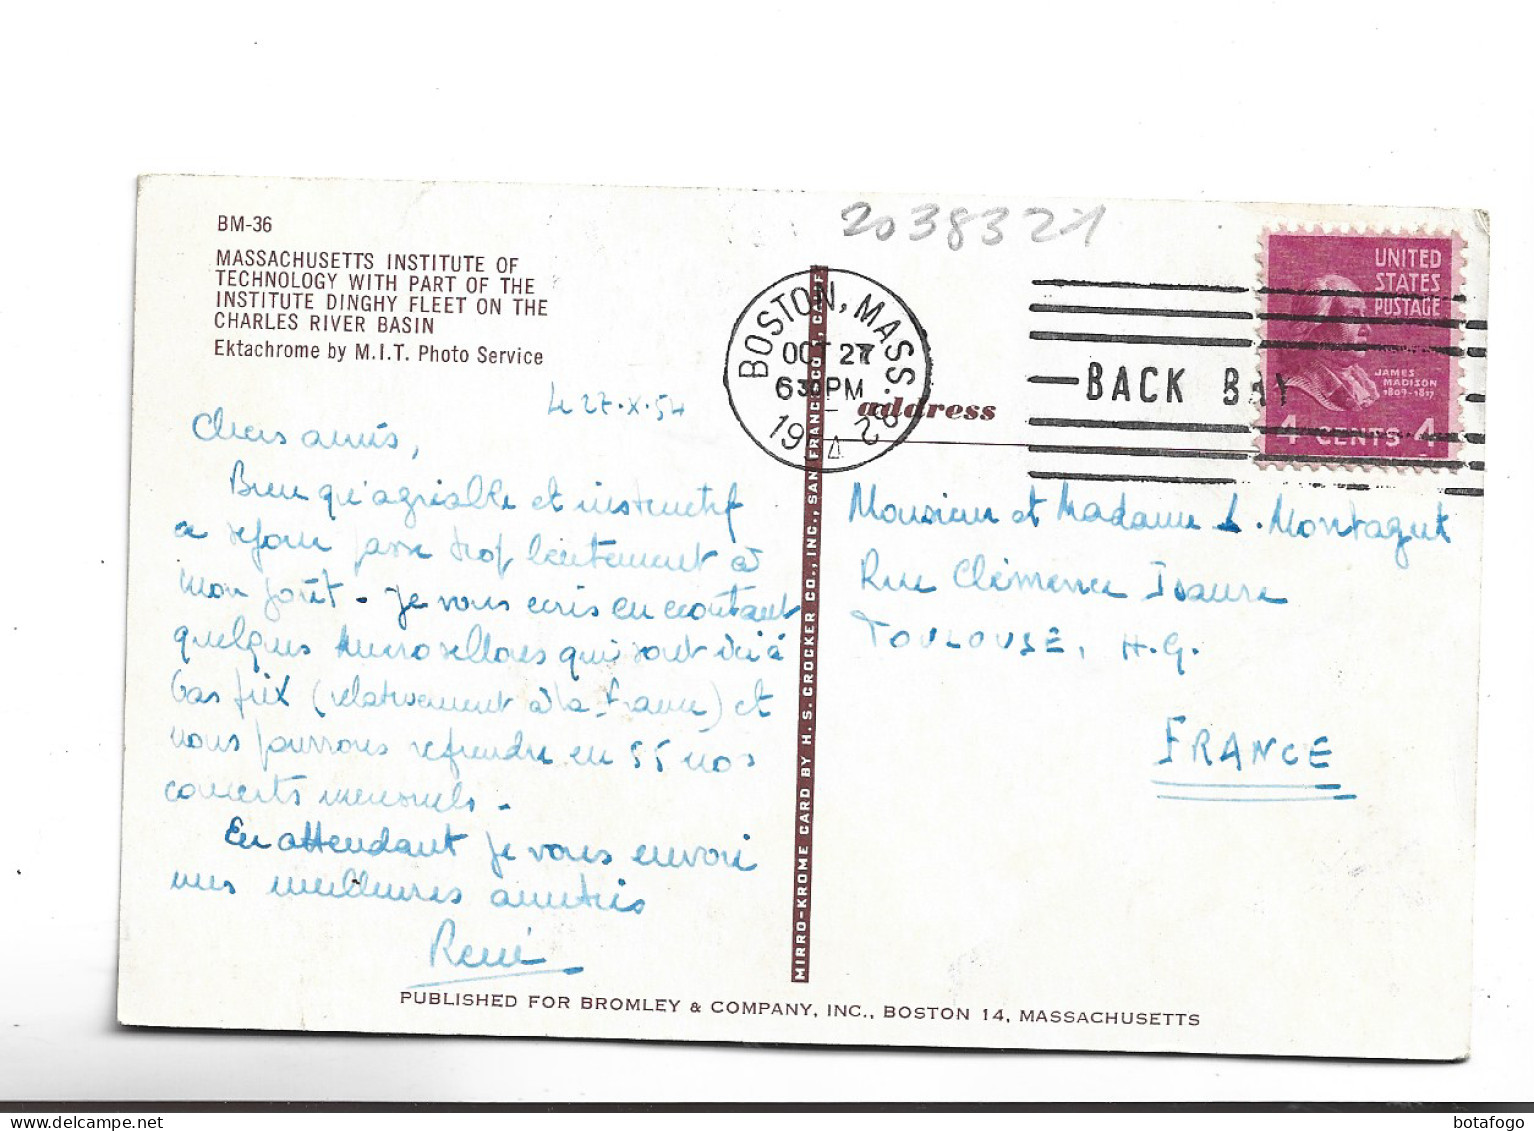 2038321
BM-36
MASSACHUSETTS INSTITUTE OF
TECHNOLOGY WITH PART OF THE
INSTITUTE DINGHY FLEET ON THE
CHARLES RIVER BASIN
Ektachrome by M.I.T. Photo Service
Le 27.X.54
Chers amis,
Bien qu'agréable et instructif
ce séjour passe trop lentement à
mon goût - Je vous écris en écoutant
quelques microsillons qui sont ici à
bas prix (relativement à la France) et
nous pourrons reprendre en 55 nos
concerts mensuels.
En attendant je vous envoie
mes meilleures amitiés
René
BOSTON, MASS.
OCT 27
6 30 PM
1954
BACK BAY
UNITED
STATES
POSTAGE
JAMES
MADISON
1809-1817
4 CENTS 4
address
Monsieur et Madame L. Montagut
Rue Clémence Isaure
TOULOUSE, H.G.
FRANCE
MIRRO-KROME CARD BY H. S. CROCKER CO., INC., SAN FRANCISCO 1, CALIF.
PUBLISHED FOR BROMLEY & COMPANY, INC., BOSTON 14, MASSACHUSETTS
delcampe.net
botafogo